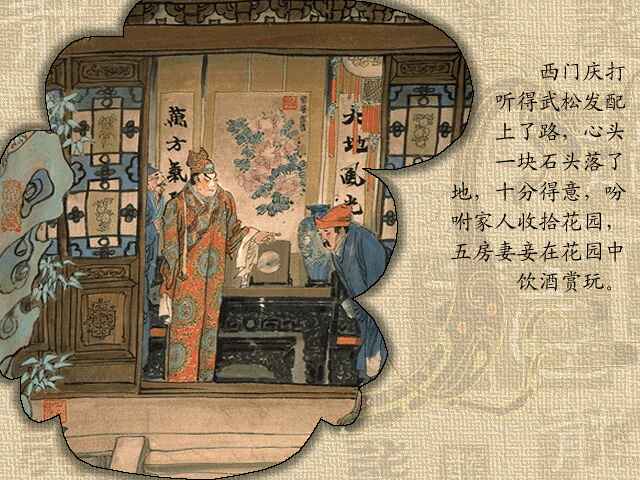 西门庆打
听得武松发配
上了路，心头
一块石头落了
地，十分得意，吩
咐家人收拾花园，
五房妻妾在花园中
饮酒赏玩。
萬方氣
天地風光